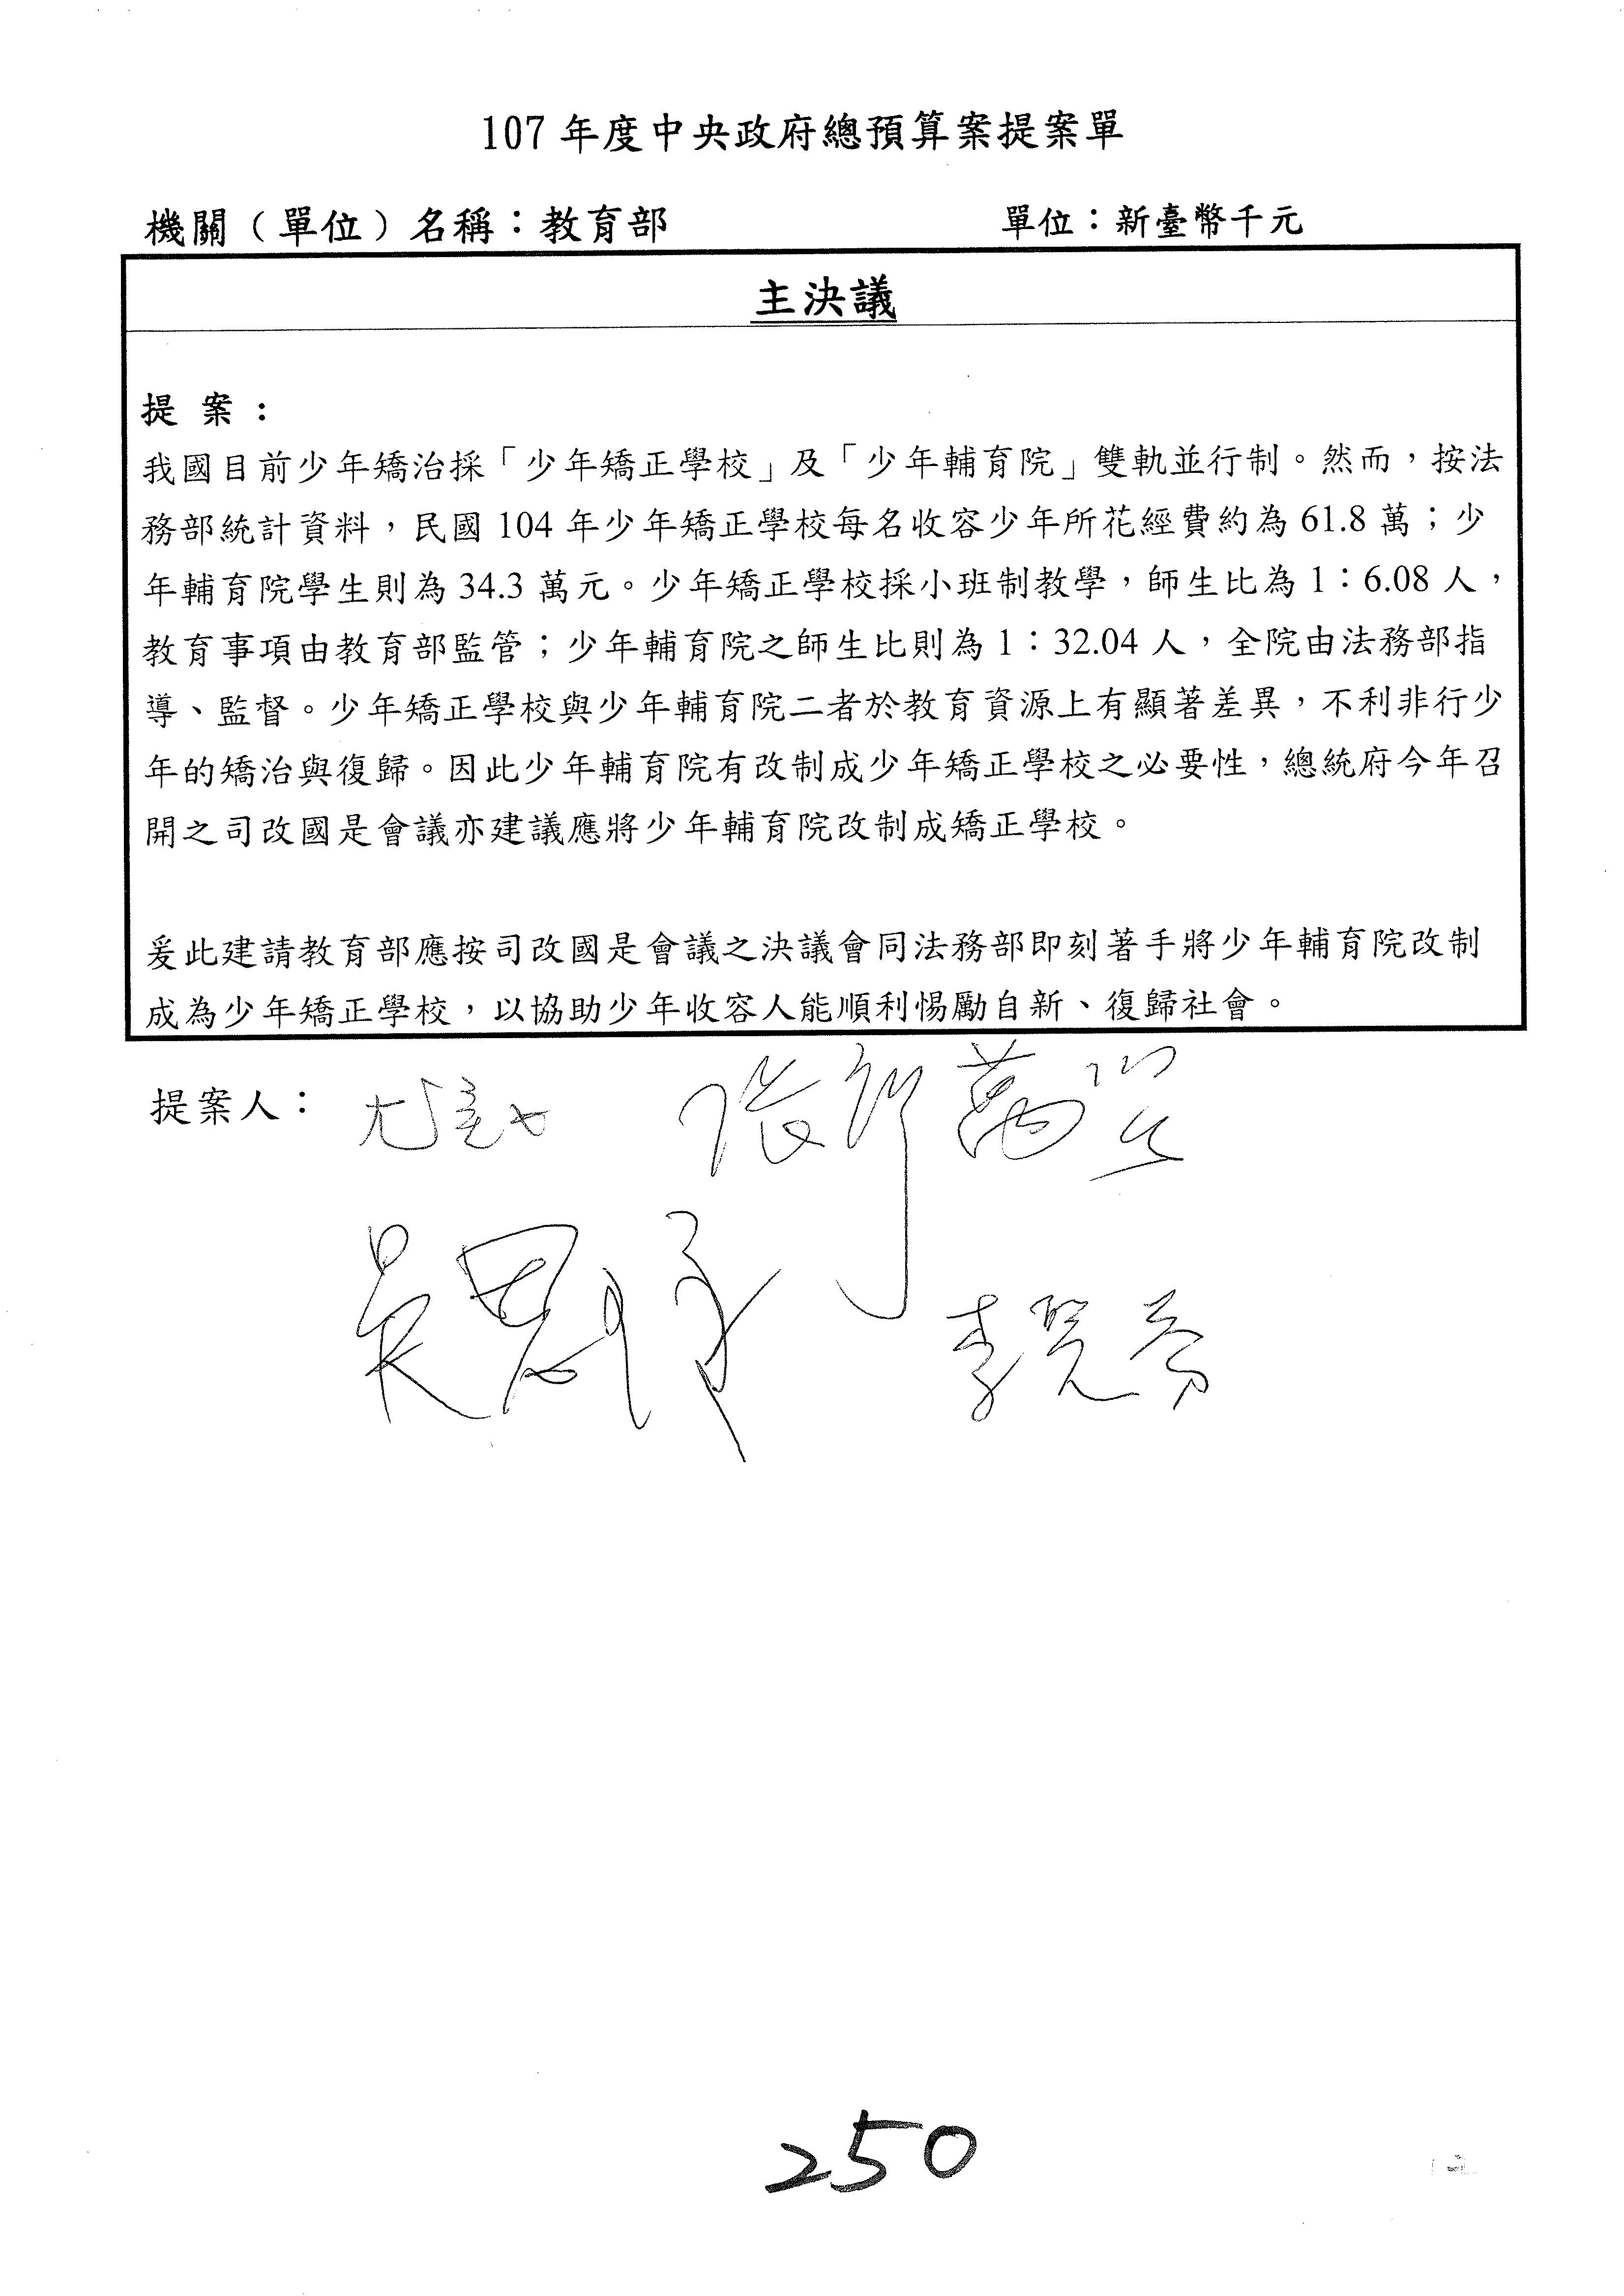 107 年度中央政府總預算案提案單
機關（單位）名稱：教育部 單位：新臺幣千元
主決議
提 案：
我國目前少年矯治採「少年矯正學校」及「少年輔育院」雙軌並行制。然而，按法
務部統計資料，民國 104 年少年矯正學校每名收容少年所花經費約為 61.8 萬；少
年輔育院學生則為 34.3 萬元。少年矯正學校採小班制教學，師生比為 1：6.08 人，
教育事項由教育部監管；少年輔育院之師生比則為 1：32.04 人，全院由法務部指
導、監督。少年矯正學校與少年輔育院二者於教育資源上有顯著差異，不利非行少
年的矯治與復歸。因此少年輔育院有改制成少年矯正學校之必要性，總統府今年召
開之司改國是會議亦建議應將少年輔育院改制成矯正學校。
爰此建請教育部應按司改國是會議之決議會同法務部即刻著手將少年輔育院改制
成為少年矯正學校，以協助少年收容人能順利惕勵自新、復歸社會。
提案人：
吳思瑤 李麗芬
250